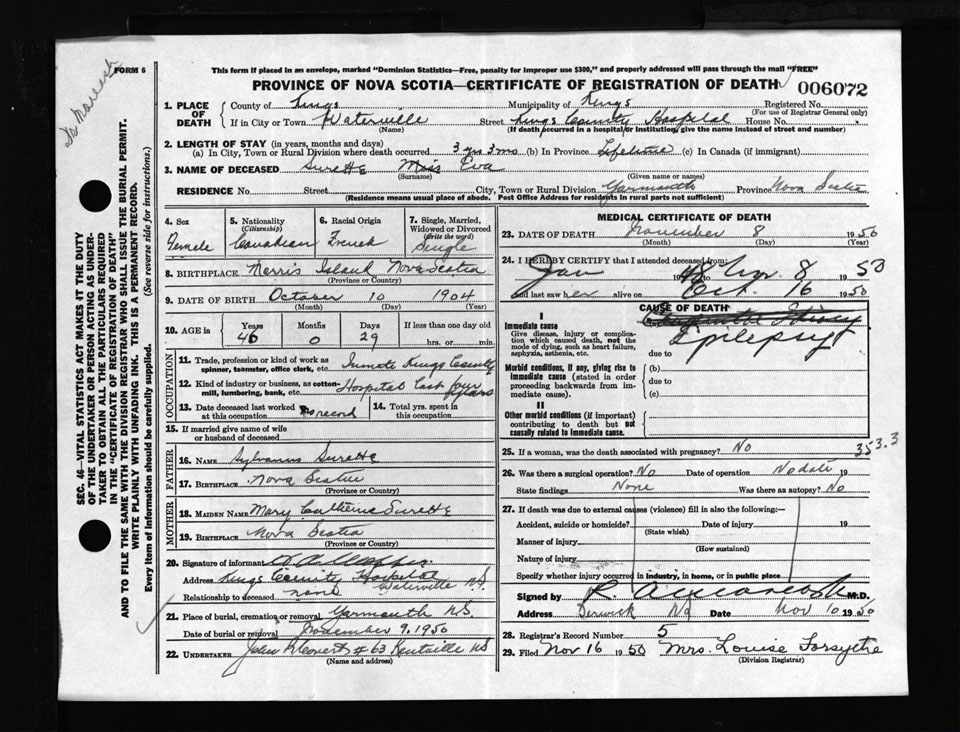 FORM 6
This form if placed in an envelope, marked "Dominion Statistics—Free, penalty for improper use $300," and properly addressed will pass through the mail "FREE"
PROVINCE OF NOVA SCOTIA—CERTIFICATE OF REGISTRATION OF DEATH
006072
1. PLACE OF DEATH
County of Kings Municipality of Kings Registered No.
(For use of Registrar General only)
If in City or Town Waterville Street Kings County Hospital House No.
(Name) (If death occurred in a hospital or institution, give the name instead of street and number)
2. LENGTH OF STAY (in years, months and days)
(a) In City, Town or Rural Division where death occurred 3 yrs 3 mo (b) In Province Lifetime (c) In Canada (if immigrant)
3. NAME OF DECEASED Surette Miss Eva
(Surname) (Given name or names)
RESIDENCE No. Street City, Town or Rural Division Yarmouth Province Nova Scotia
(Residence means usual place of abode. Post Office Address for residents in rural parts not sufficient)
4. Sex Female
5. Nationality (Citizenship) Canadian
6. Racial Origin French
7. Single, Married, Widowed or Divorced (Write the word) Single
8. BIRTHPLACE Morris Island Nova Scotia
(Province or Country)
9. DATE OF BIRTH October 10 1904
(Month) (Day) (Year)
10. AGE in Years Months Days If less than one day old
46 0 29 hrs. or min.
OCCUPATION
11. Trade, profession or kind of work as spinner, teamster, office clerk, etc. Inmate Kings County
12. Kind of industry or business, as cotton-mill, lumbering, bank, etc. Hospital last four years
13. Date deceased last worked at this occupation no record
14. Total yrs. spent in this occupation
15. If married give name of wife or husband of deceased
FATHER
16. NAME Sylvanus Surette
17. BIRTHPLACE Nova Scotia
(Province or Country)
MOTHER
18. MAIDEN NAME Mary Catherine Surette
19. BIRTHPLACE Nova Scotia
(Province or Country)
20. Signature of informant
Address Kings County Hospital Waterville N.S.
Relationship to deceased none
21. Place of burial, cremation or removal Yarmouth N.S.
Date of burial or removal November 9, 1950
22. UNDERTAKER John # 63 Kentville NS
(Name and address)
MEDICAL CERTIFICATE OF DEATH
23. DATE OF DEATH November 8 1950
(Month) (Day) (Year)
24. I HEREBY CERTIFY that I attended deceased from:
Jan 1948 to Nov. 8 1950
and last saw her alive on Oct. 16 1950
CAUSE OF DEATH
I
Immediate cause
Give disease, injury or complication which caused death, not the mode of dying, such as heart failure, asphyxia, asthenia, etc.
Epilepsy
due to
Morbid conditions, if any, giving rise to immediate cause (stated in order proceeding backwards from immediate cause).
(b)
due to
(c)
II
Other morbid conditions (if important) contributing to death but not causally related to immediate cause.
25. If a woman, was the death associated with pregnancy? No
353.3
26. Was there a surgical operation? No Date of operation No date 19
State findings None Was there an autopsy? No
27. If death was due to external causes (violence) fill in also the following:—
Accident, suicide or homicide? Date of injury 19
(State which)
Manner of injury
(How sustained)
Nature of injury
Specify whether injury occurred in industry, in home, or in public place
Signed by M.D.
Address Berwick NS Date Nov 10 1950
28. Registrar's Record Number 5
29. Filed Nov 16 1950 Mrs. Louise Forsythe
(Division Registrar)
SEC. 46—VITAL STATISTICS ACT MAKES IT THE DUTY
OF THE UNDERTAKER OR PERSON ACTING AS UNDER-
TAKER TO OBTAIN ALL THE PARTICULARS REQUIRED
IN THE "CERTIFICATE OF REGISTRATION OF DEATH"
AND TO FILE THE SAME WITH THE DIVISION REGISTRAR WHO SHALL ISSUE THE BURIAL PERMIT.
WRITE PLAINLY WITH UNFADING INK. THIS IS A PERMANENT RECORD.
Every item of information should be carefully supplied. (See reverse side for instructions.)